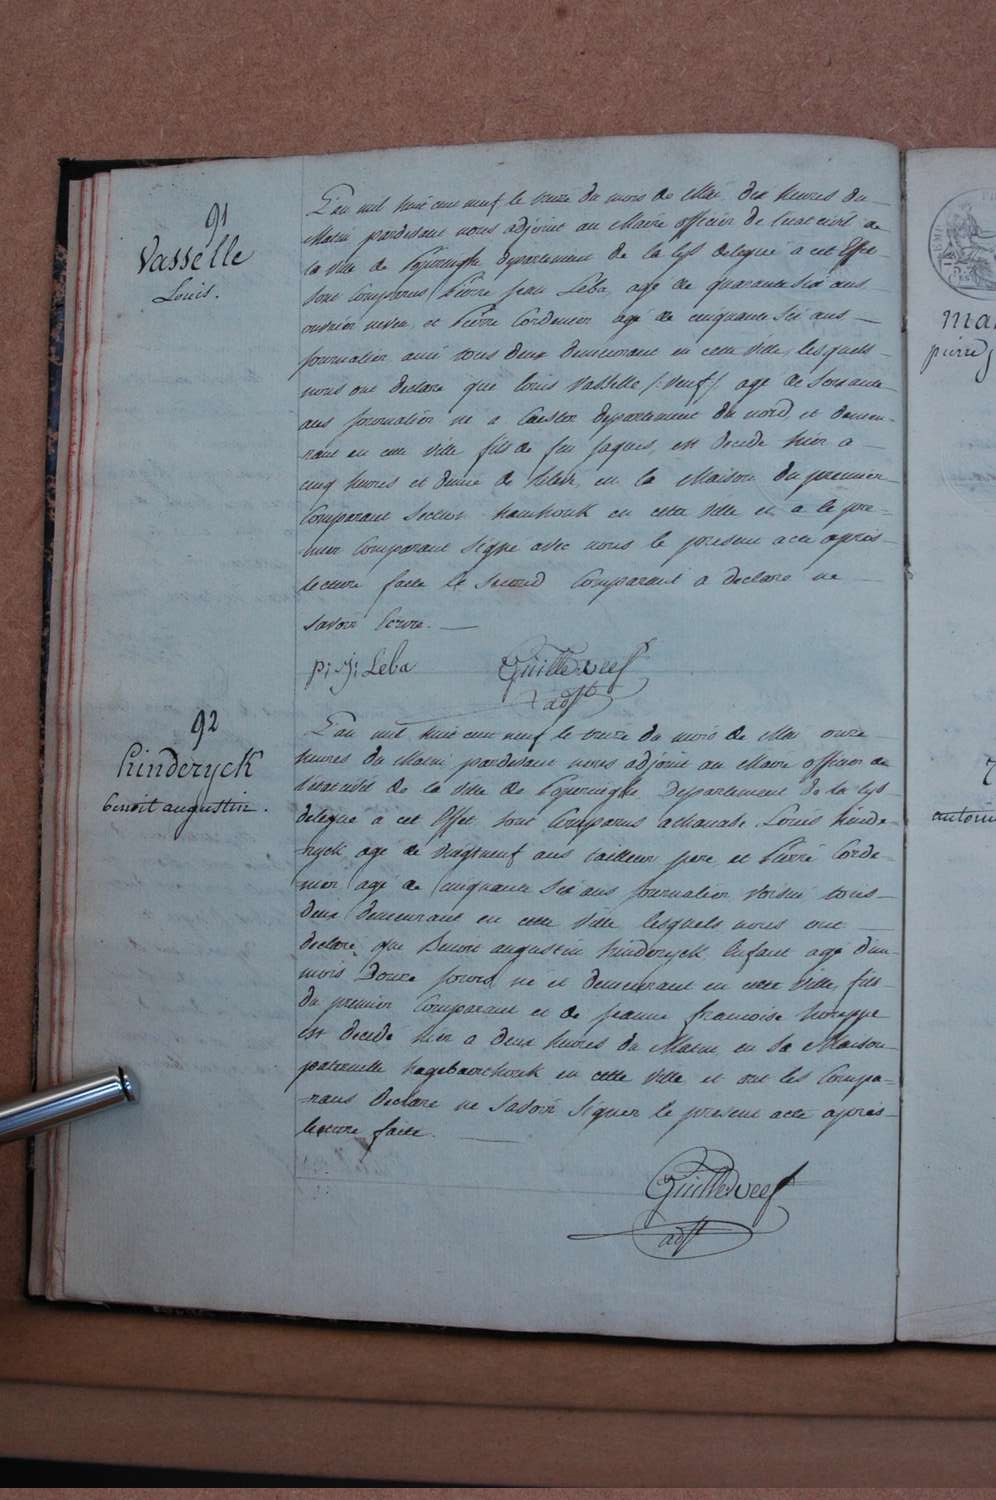 91
Vasselle
Louis.
L'an mil huit cent neuf le treize du mois de Mai dix heures du
Matin pardevant nous adjoint au Maire officier de l'etat civil de
la ville de Poperinghe departement de la Lys delegué a cet Effet
sont Comparus Pierre Jean Leba, agé de quarante six ans
ouvrier neveu, et Pierre Cordemer agé de cinquante six ans
journalier ami tous deux demeurant en cette ville, lesquels
nous ont declaré que louis Vasselle /: veuf :/ agé de soixante
ans journalier né a Caester departement du nord, et demeu-
rant en cette ville fils de feu jaques, est decedé hier a
cinq heures et demie de relevée, en la Maison du premier
Comparant Section hamhouk en cette ville et a le pre-
mier Comparant signé avec nous le present acte après
lecture faite le second Comparant a declaré ne
savoir Ecrire.
p: j: Leba
Guilleweef
adjt
92
hinderyck
benoit augustin.
L'an mil huit cent neuf le treize du mois de Mai onze
heures du Matin, pardevant nous adjoint au Maire officier de
l'etat civil de la ville de Poperinghe departement de la Lys
delegué a cet Effet sont Comparus athanase Louis hinde-
ryck agé de vingtneuf ans tailleur pere et Pierre Corde-
mer agé de cinquante six ans journalier voisin tous
deux demeurant en cette ville lesquels nous ont
declaré que Benoit augustin hinderyck Enfant agé d'un
mois Douze jours, né et demeurant en cette ville, fils
du premier Comparant et de jeanne francoise
est decedé hier a deux heures du Matin en sa Maison
paternelle hagebaerthouk en cette ville et ont les Compa-
rans declaré ne savoir signer le present acte après
lecture faite.
Guilleweef
adjt
pierre j
antoin